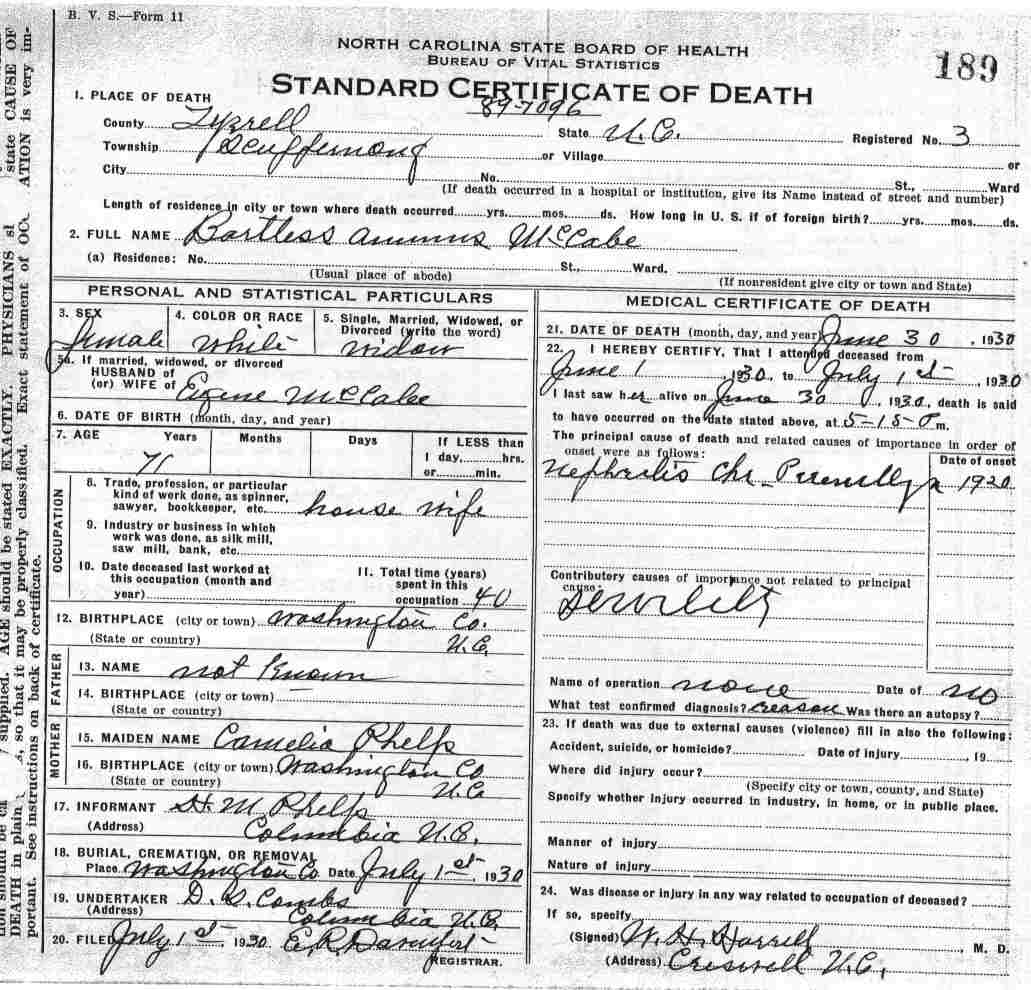 B. V. S.—Form 11
NORTH CAROLINA STATE BOARD OF HEALTH
BUREAU OF VITAL STATISTICS
189
STANDARD CERTIFICATE OF DEATH
89-7096
1. PLACE OF DEATH
County Tyrrell State N.C. Registered No. 3
Township Scuppernong or Village or
City No. St., Ward
(If death occurred in a hospital or institution, give its Name instead of street and number)
Length of residence in city or town where death occurred yrs. mos. ds. How long in U. S. if of foreign birth? yrs. mos. ds.
2. FULL NAME Bartless McCabe
(a) Residence: No. St., Ward.
(Usual place of abode) (If nonresident give city or town and State)
PERSONAL AND STATISTICAL PARTICULARS
3. SEX
Female
4. COLOR OR RACE
White
5. Single, Married, Widowed, or
Divorced (write the word)
Widow
5a. If married, widowed, or divorced
HUSBAND of
(or) WIFE of Eugene McCabe
6. DATE OF BIRTH (month, day, and year)
7. AGE Years Months Days If LESS than
1 day, hrs.
71 or min.
OCCUPATION
8. Trade, profession, or particular
kind of work done, as spinner,
sawyer, bookkeeper, etc. house wife
9. Industry or business in which
work was done, as silk mill,
saw mill, bank, etc.
10. Date deceased last worked at
this occupation (month and
year)
11. Total time (years)
spent in this
occupation 40
12. BIRTHPLACE (city or town) Washington Co.
(State or country) N.C.
FATHER
13. NAME not Known
14. BIRTHPLACE (city or town) —
(State or country)
MOTHER
15. MAIDEN NAME Camelia Phelps
16. BIRTHPLACE (city or town) Washington Co
(State or country) N.C
17. INFORMANT H. M. Phelps
(Address) Columbia N.C.
18. BURIAL, CREMATION, OR REMOVAL
Place Washington Co Date July 1st, 1930
19. UNDERTAKER D. S. Combs
(Address) Columbia N.C.
20. FILED July 1st 1930 E. R. Davenport
REGISTRAR.
MEDICAL CERTIFICATE OF DEATH
21. DATE OF DEATH (month, day, and year) June 30, 1930
22. I HEREBY CERTIFY, That I attended deceased from
June 1, 1930, to July 1st, 1930
I last saw her alive on June 30, 1930, death is said
to have occurred on the date stated above, at 5-15-P m.
The principal cause of death and related causes of importance in order of
onset were as follows:
Date of onset
Nephritis Chr 1920
Contributory causes of importance not related to principal
cause:
Name of operation none Date of no
What test confirmed diagnosis? Was there an autopsy?
23. If death was due to external causes (violence) fill in also the following:
Accident, suicide, or homicide? Date of injury , 19
Where did injury occur?
(Specify city or town, county, and State)
Specify whether injury occurred in industry, in home, or in public place.
Manner of injury
Nature of injury
24. Was disease or injury in any way related to occupation of deceased?
If so, specify
(Signed) W. H. Harrell, M. D.
(Address) Creswell N.C.
state CAUSE OF
ATION is very im-
AGE should be stated EXACTLY. PHYSICIANS
so that it may be properly classified. Exact statement of
DEATH in plain
portant. See instructions on back of certificate.